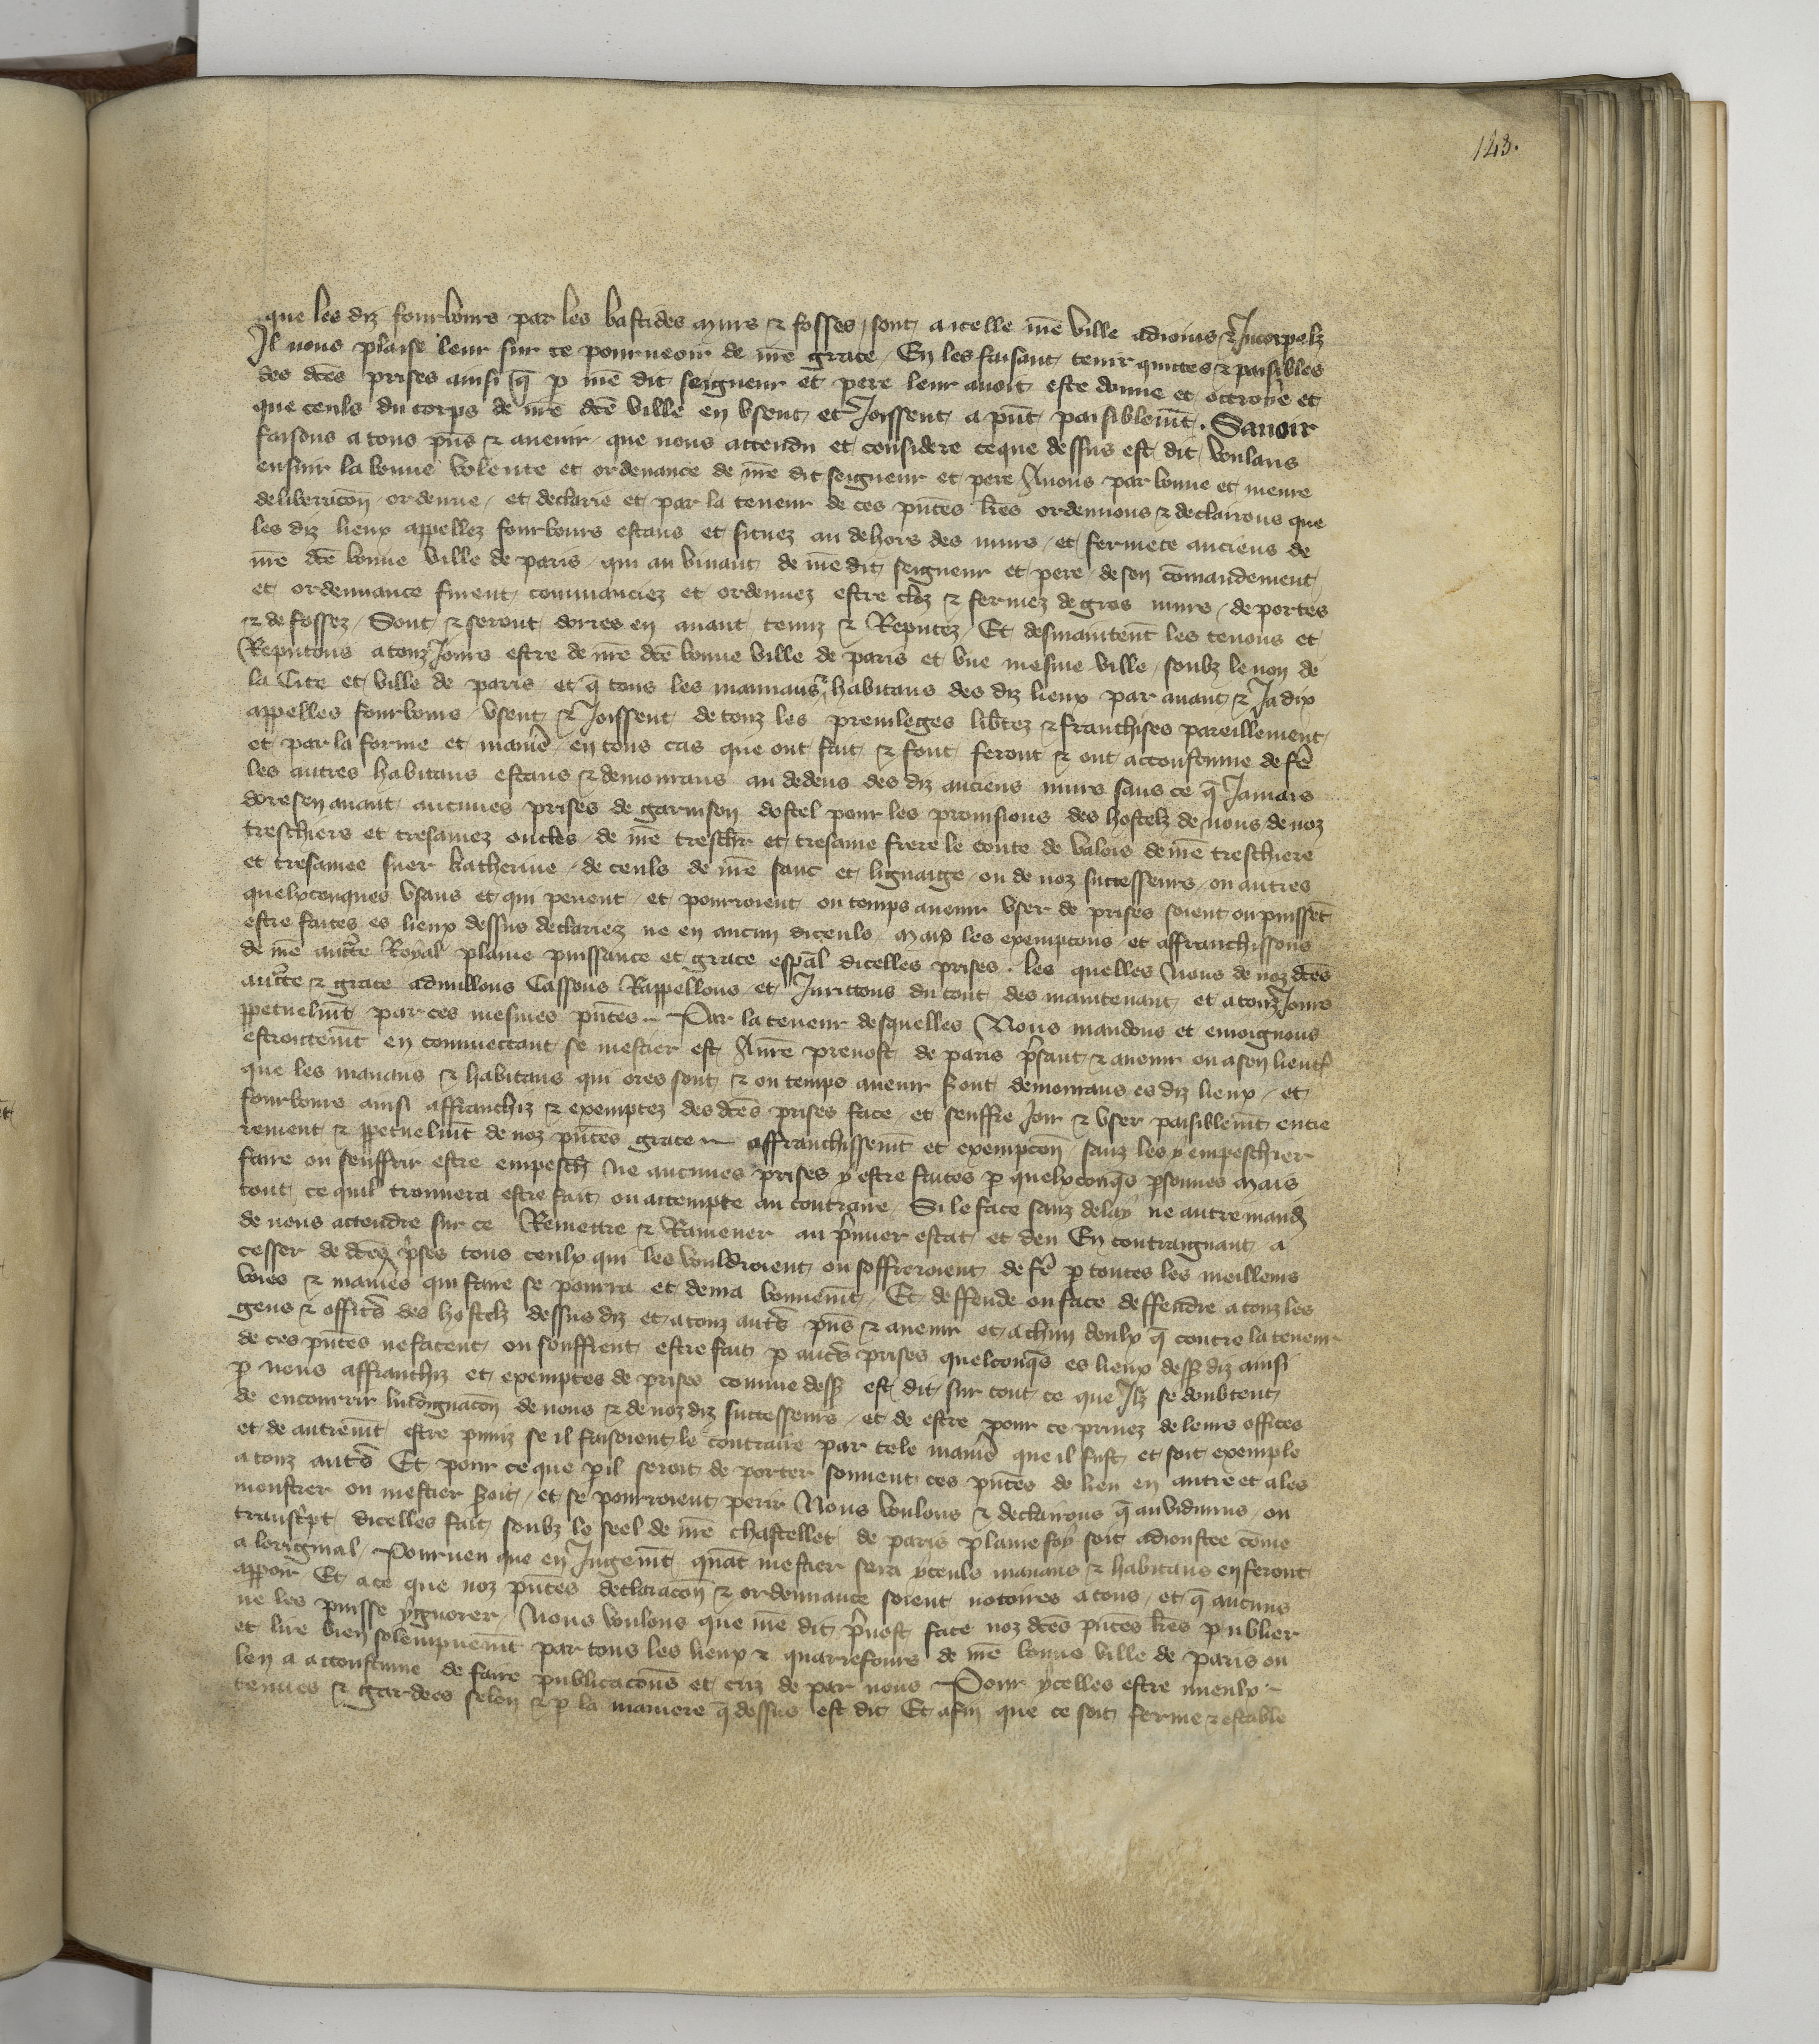 123.
que les diz fourbours par les bastides murs & fosses sont a icelle nr̃e ville adioins & Incorpelz
Il nous plaise leur sur ce pourueoir de nr̃e grace En les faisant tenir quittes & paisibles
des dc̃es prises ainsi q̃ p nr̃e dit seigneur et pere leur auoit este donne et octroye et
que ceuls du corps de nr̃e dc̃e ville en vsent et Joissent a pñt paisiblem̃t. Sauoir
faisons a tous pñs & auenir que nous attendu et considere ce que dessus est dit voulans
ensuir la bonne volente et ordenance de nr̃e dit seigneur et pere Auons par bonne et meure
deliberacõn ordenne et declarie et par la teneur de ces pñtes lr̃es ordennons & declairons que
les diz lieux appellez fourbours estans et situez au dehors des murs et fermete anciens de
nr̃e dc̃e bonne ville de paris qui au viuant de nr̃e dit seigneur et pere de son cõmandement
et ordennance furent commanciez et ordennez estre cloz & fermez de gros murs de portes
& de fossez Sont & seront dorres en auant tenuz & Reputez Et desmaintent̃ les tenons et
Reputons a touz Jours estre de nr̃e dc̃e bonne ville de paris et vne mesme ville soubz le non de
la Cite et ville de paris et q̃ tous les mannans & habitans des diz lieux par auant & Jadix
appelles fourbours vsent & Joissent de touz les preuileges lib̃tez & franchises pareillement
et par la forme et manie͂ en tous cas que ont fait & font feront & ont acconstume de fe͂
les autres habitans estans & demourans au dedens des diz anciens murs sans ce q̃ Jamais
doresenauant aucunes prises de garnison dostel pour les prouisions des hostelz de nous de noz
treschiers et tresamez oncles de nr̃e treschr̃ et tresame frere le conte de valois de nr̃e treschiere
et tresamee suer katherine de ceuls de nr̃e sanc et lignaige ou de noz successeurs ou autres
quelxconques vsans et qui peuent et pourroient ou temps auenir vser de prises soient ou puissẽt
estre faites es lieux dessus declariez ne en aucun diceuls maiz les exemptons et affranchissons
de nr̃e auct̃e Royal plaine puissance et grace esp̃al dicelles prises. les quelles Nous de noz dc̃es
auct̃e & grace adnullons Cassons Rappellons et Jnrittons du tout des maintenant et a touz Jours
ppetuelm̃t par ces mesmes pñtes Par la teneur desquelles Nous mandons et enioignons
estroictem̃t en commectant se mestier est A nr̃e preuost de paris p̃sant & auenir ou a son lieut̃
que les manans & habitans qui ores sont & ou temps auenir s̃ont demourans es diz lieux et
fourbours ainsi affranchiz & exemptez des dc̃es prises face et seuffre Joir & vser paisiblem̃t entie
rement & ppetuelm̃t de noz pñtes grace affranchissem̃t et exempcõn sanz les y empeschier
faire ou seuffrir estre empesch̃ ne aucunes prises y estre faites p quelxconq̃s p̃sonnes mais
tout ce quil trouuera estre fait ou attempte au contraire Si le face sanz delay ne autre mand̃
de nous attendre sur ce Remettre & Ramener au p̃mier estat et deu En contraignant a
cesser de dc̃es p̃ses tous ceulx qui les vouldroient ou soffreroient de fe͂ p toutes les meilleurs
voies & manie͂s qui faire se pourra et deura bonnem̃t Et deffende ou face deffendre a touz les
gens & offic̃s des hostelz dessus diz et a touz aut̃s pñs & auenir et a chũn deulx q̃ contre la teneur
de ces pñtes ne facent ou seuffrent estre fait p auc̃s prises quelconq̃s es lieux dess9 diz ainsi
p nous affranchiz et exemptes de prises comme dess9 est dit sur tout ce que Ilz se doubtent
de encourrir lindignacõn de nous & de noz diz successeurs et de estre pour ce priuez de leurs offices
et de autrem̃t estre puniz se il faisoient le contraire par tele manie͂ que il fust et soit exemple
a touz aut̃s Et pour ce que pil seroit de porter souuent ces pñtes de lieu en autre et a les
monstrer ou mestier s̃oit et se pourroient perir Nous voulons & declairons q̃ au vidimus ou
transc̃pt dicelles fait soubz le seel de nr̃e chastellet de paris plaine foy soit adioustee cõme
a loriginal Pourueu que en Jugem̃t quãt mestier sera yceuls manans & habitans en feront
appoir Et a ce que noz pñtes declaracõn & ordennance soient notoires a tous et q̃ aucuns
ne les puisse ygnorer Nous voulons que nr̃e dit p̃uost face noz dc̃es pñtes lr̃es publier
et lire bien solempnem̃t par tous les lieux & quarrefours de nr̃e bonne ville de paris ou
len a acconstume de faire publicacõns et criz de par nous Pour ycelles estre mieulx
tenues & gardees selon & p la maniere q̃ dessus est dit Et afin que ce soit ferme & estable